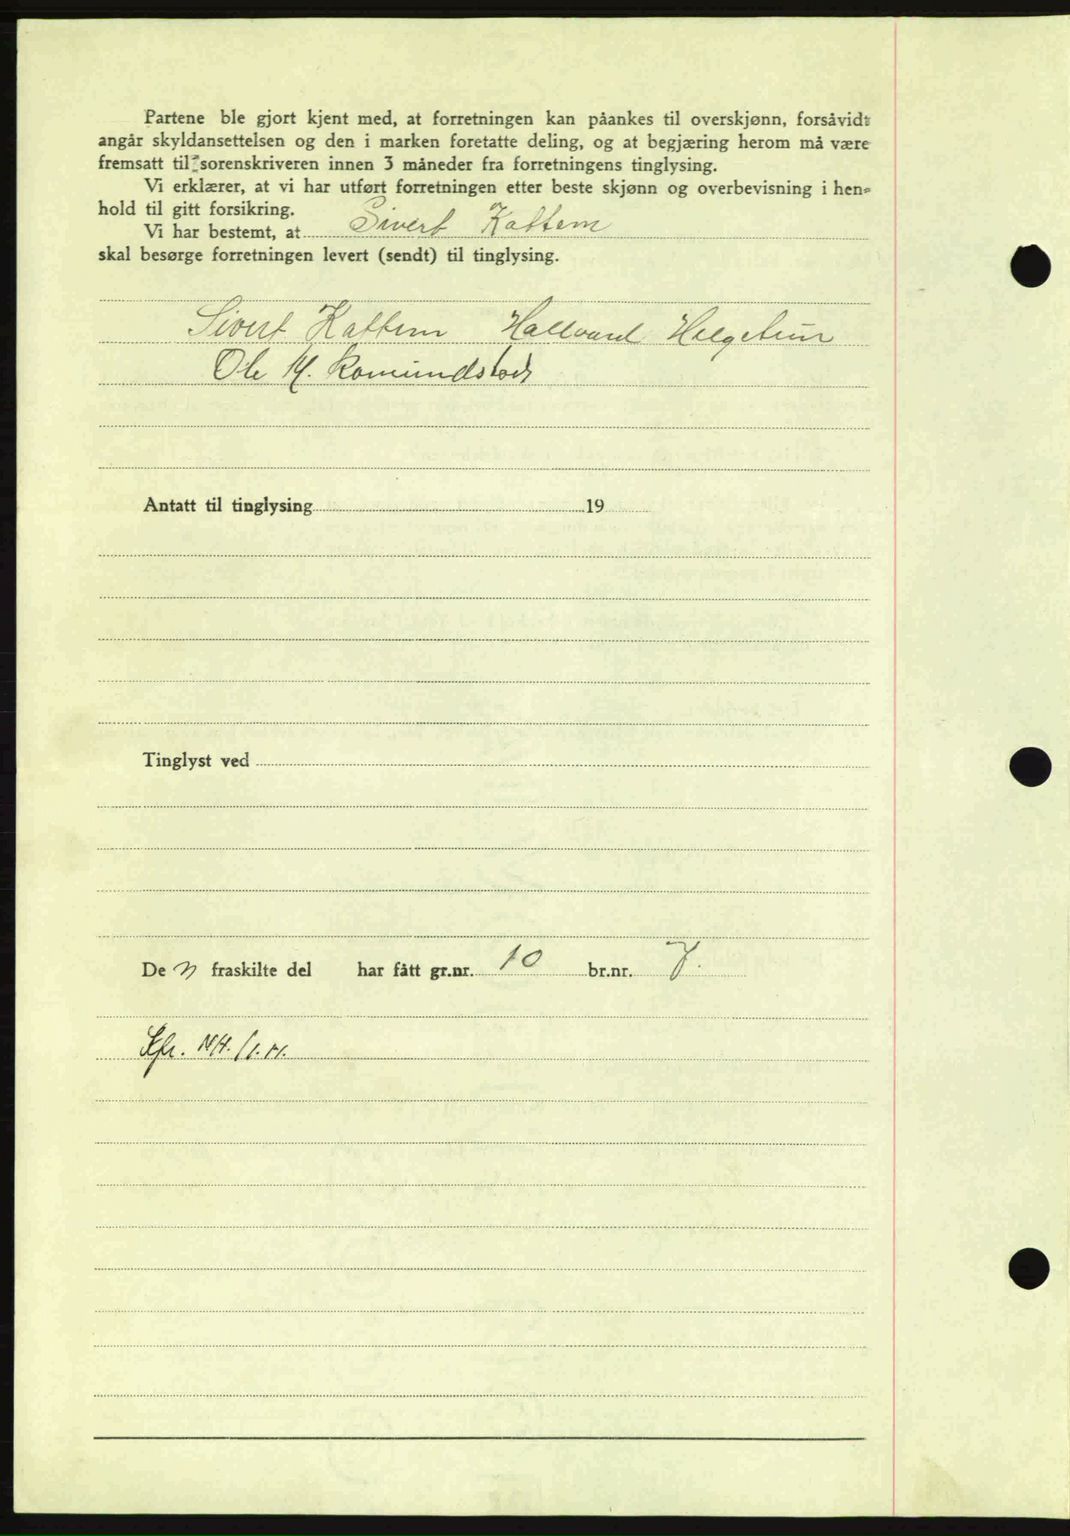 Partene ble gjort kjent med, at forretningen kan påankes til overskjønn, forsåvidt
angår skyldansettelsen og den i marken foretatte deling, og at begjæring herom må være
fremsatt til sorenskriveren innen 3 måneder fra forretningens tinglysing.
Vi erklærer, at vi har utført forretningen etter beste skjønn og overbevisning i hen-
hold til gitt forsikring.
Vi har bestemt, at Sivert Kattem
skal besørge forretningen levert (sendt) til tinglysing.
Sivert Kattem Hallvard Helgetun
Ole M. Romundstad
Antatt til tinglysing 19
Tinglyst ved
De n fraskilte del har fått gr.nr. 10 br.nr. 7.